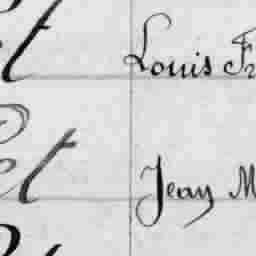 et Louis Fr
et Jean M